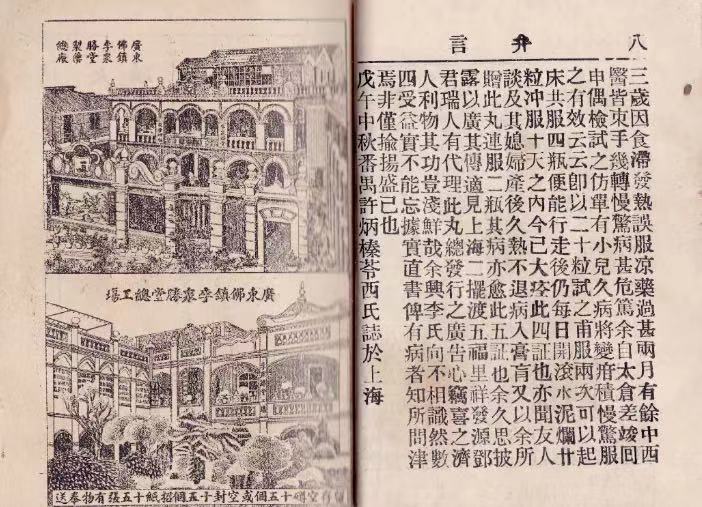 八
弁言
三歲因食滯發熱誤服凉藥過甚兩月有餘中西
醫皆束手幾轉慢驚病甚危篤余自太倉差竣回
申偶檢試之仿單有小兒久病將變疳積慢驚服
之有效云云卽以二十粒試之甫服兩次可以起
床共服四瓶便能行走後仍每日開滾水泥爛廿
粒冲服十天之內今已大痊此四証也亦聞友人
談及其媳婦產後久熱不退病入膏肓又以余所
贈此丸連服二瓶其病亦愈此五証也余久思披
露以廣其傳適見上海二擺渡五福里祥發源鄧
君瑞人有代理此丸總發行之廣告心竊喜之濟
人利物其功豈淺鮮哉余與李氏向不相識然數
四受益實不能忘據實直書俾有病者知所問津
焉非僅揄揚盛已也
戊午中秋番禺許炳榛苓西氏誌於上海
廣東
佛鎮
李衆
勝堂
製
總廠
廣東佛鎮李衆勝堂總工塲
存空蠟十五個或空封十五個招紙十五張有物奉送